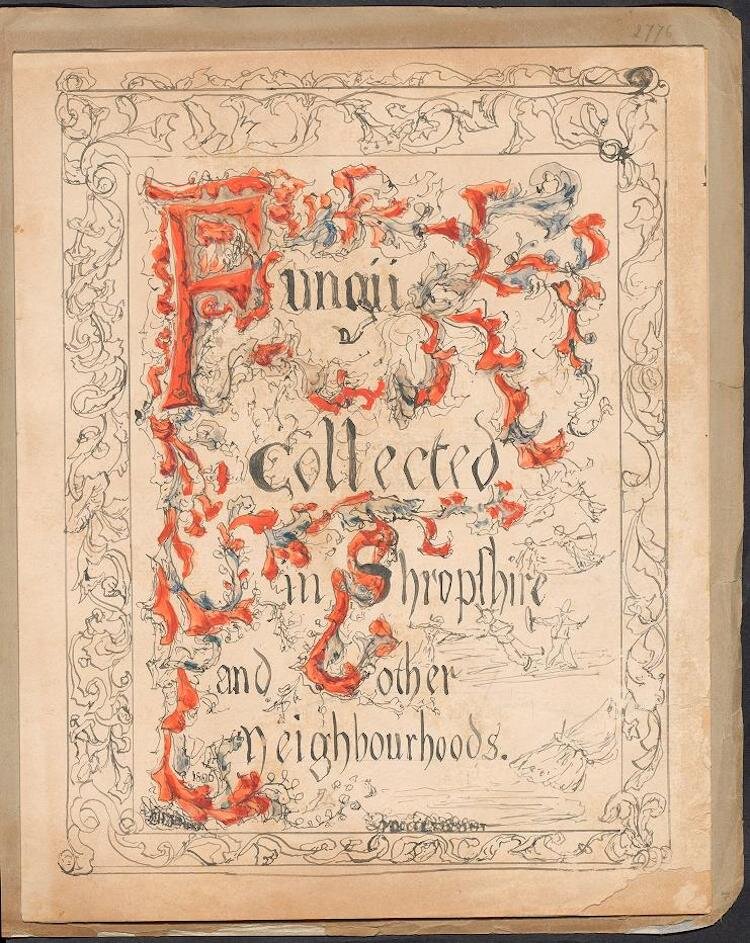 2776
Fungii
Collected
in Shropſhire
and other
Neighbourhoods.